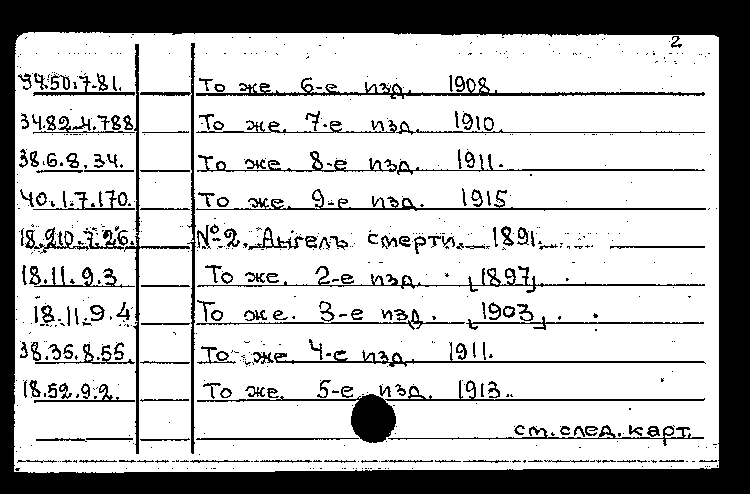 2
34.50.7.81. То же. 6-е изд. 1908.
34.82.4.788 То же. 7-е изд. 1910.
38.6.8.34. То же. 8-е изд. 1911.
40.1.7.170. То же. 9-е изд. 1915
18.210.7.26. № 2. Ангелъ смерти. 1891.
18.11.9.3 То же. 2-е изд. [1897].
18.11.9.4 То же. 3-е изд. [1903].
38.35.8.55. То же. 4-е изд. 1911.
18.52.9.2. То же. 5-е изд. 1913.
см. след. карт.